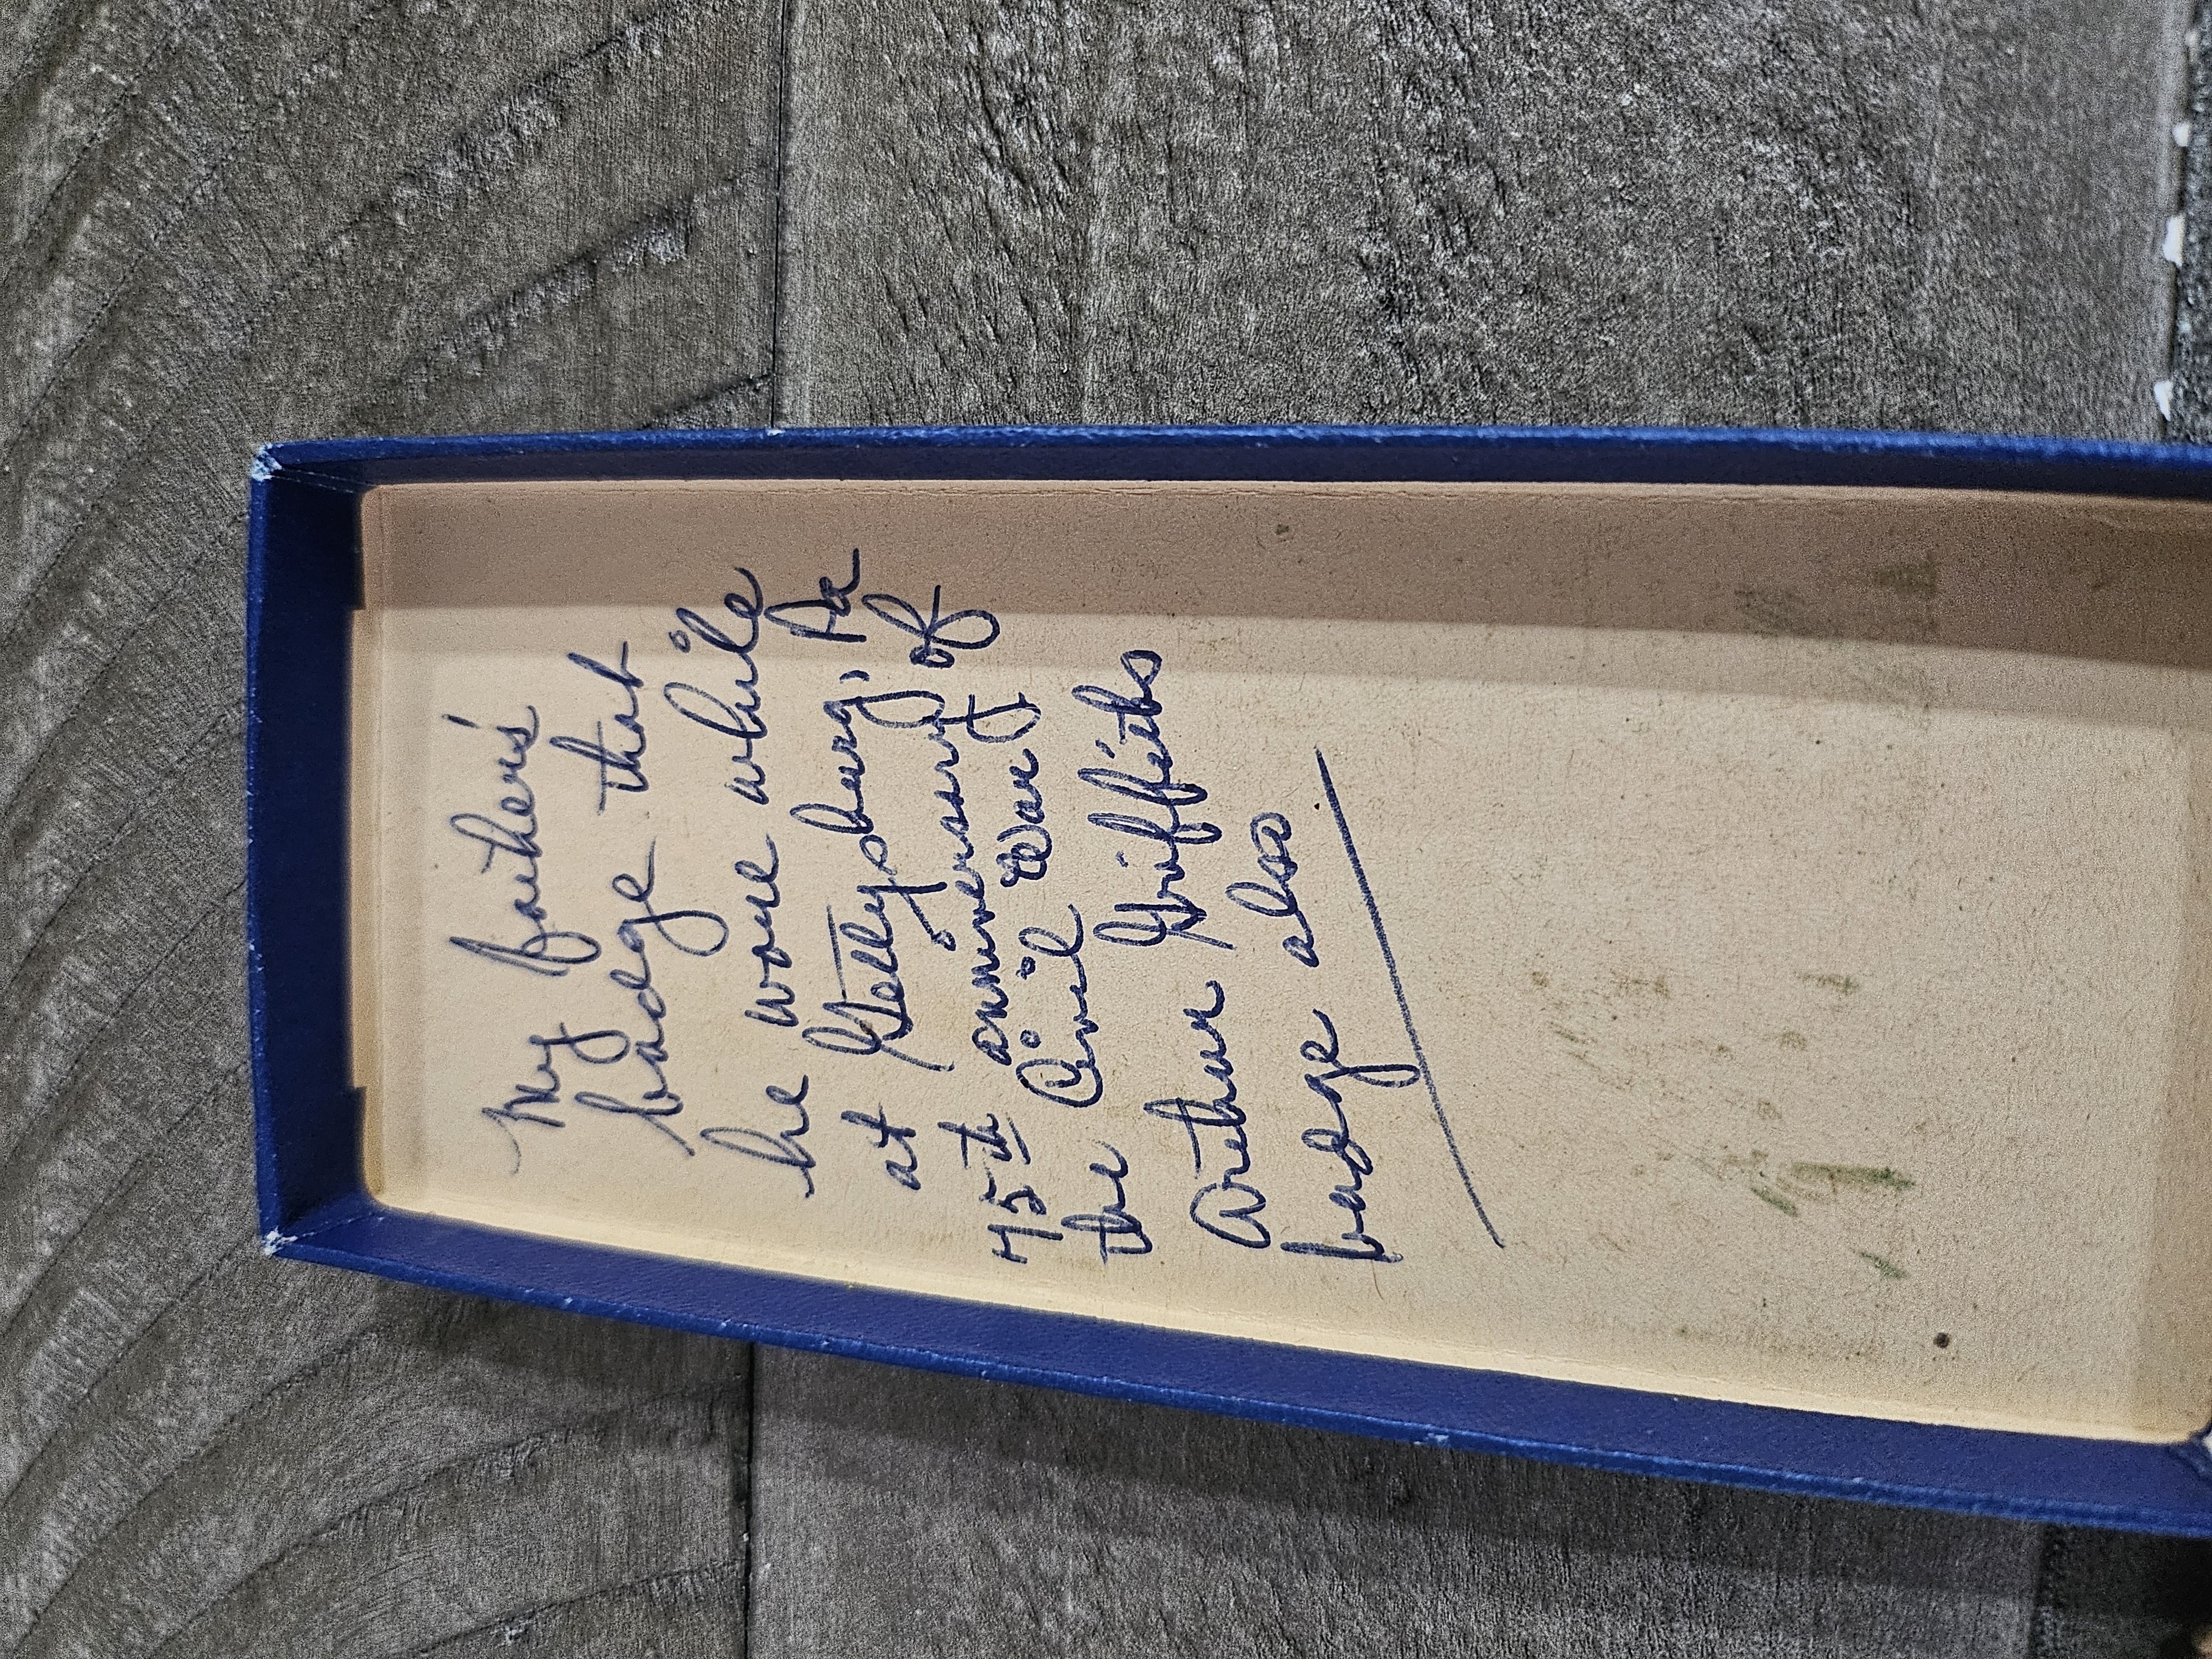 My father's
badge that
he wore while
at Gettysburg, Pa
75th anniversary of
the Civil War
Arthur Griffiths
badge also